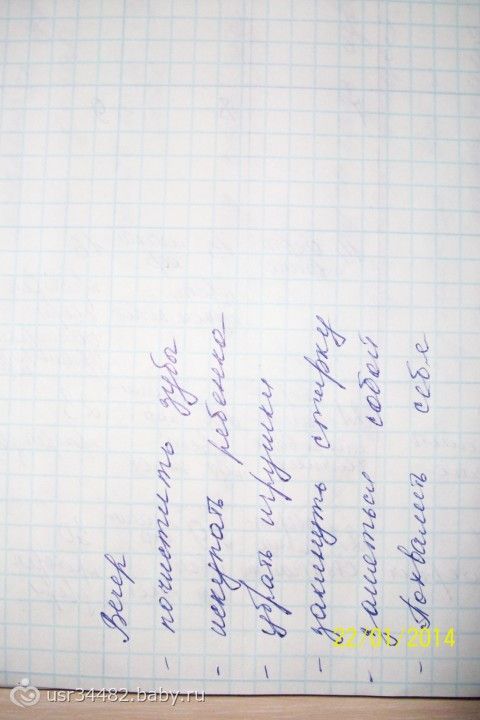 Вечер
- почистить зубы
- искупать ребенка
- убрать игрушки
- закинуть стирку
- заняться собой
- Похвалить себя
22/01/2014
usr34482.baby.ru